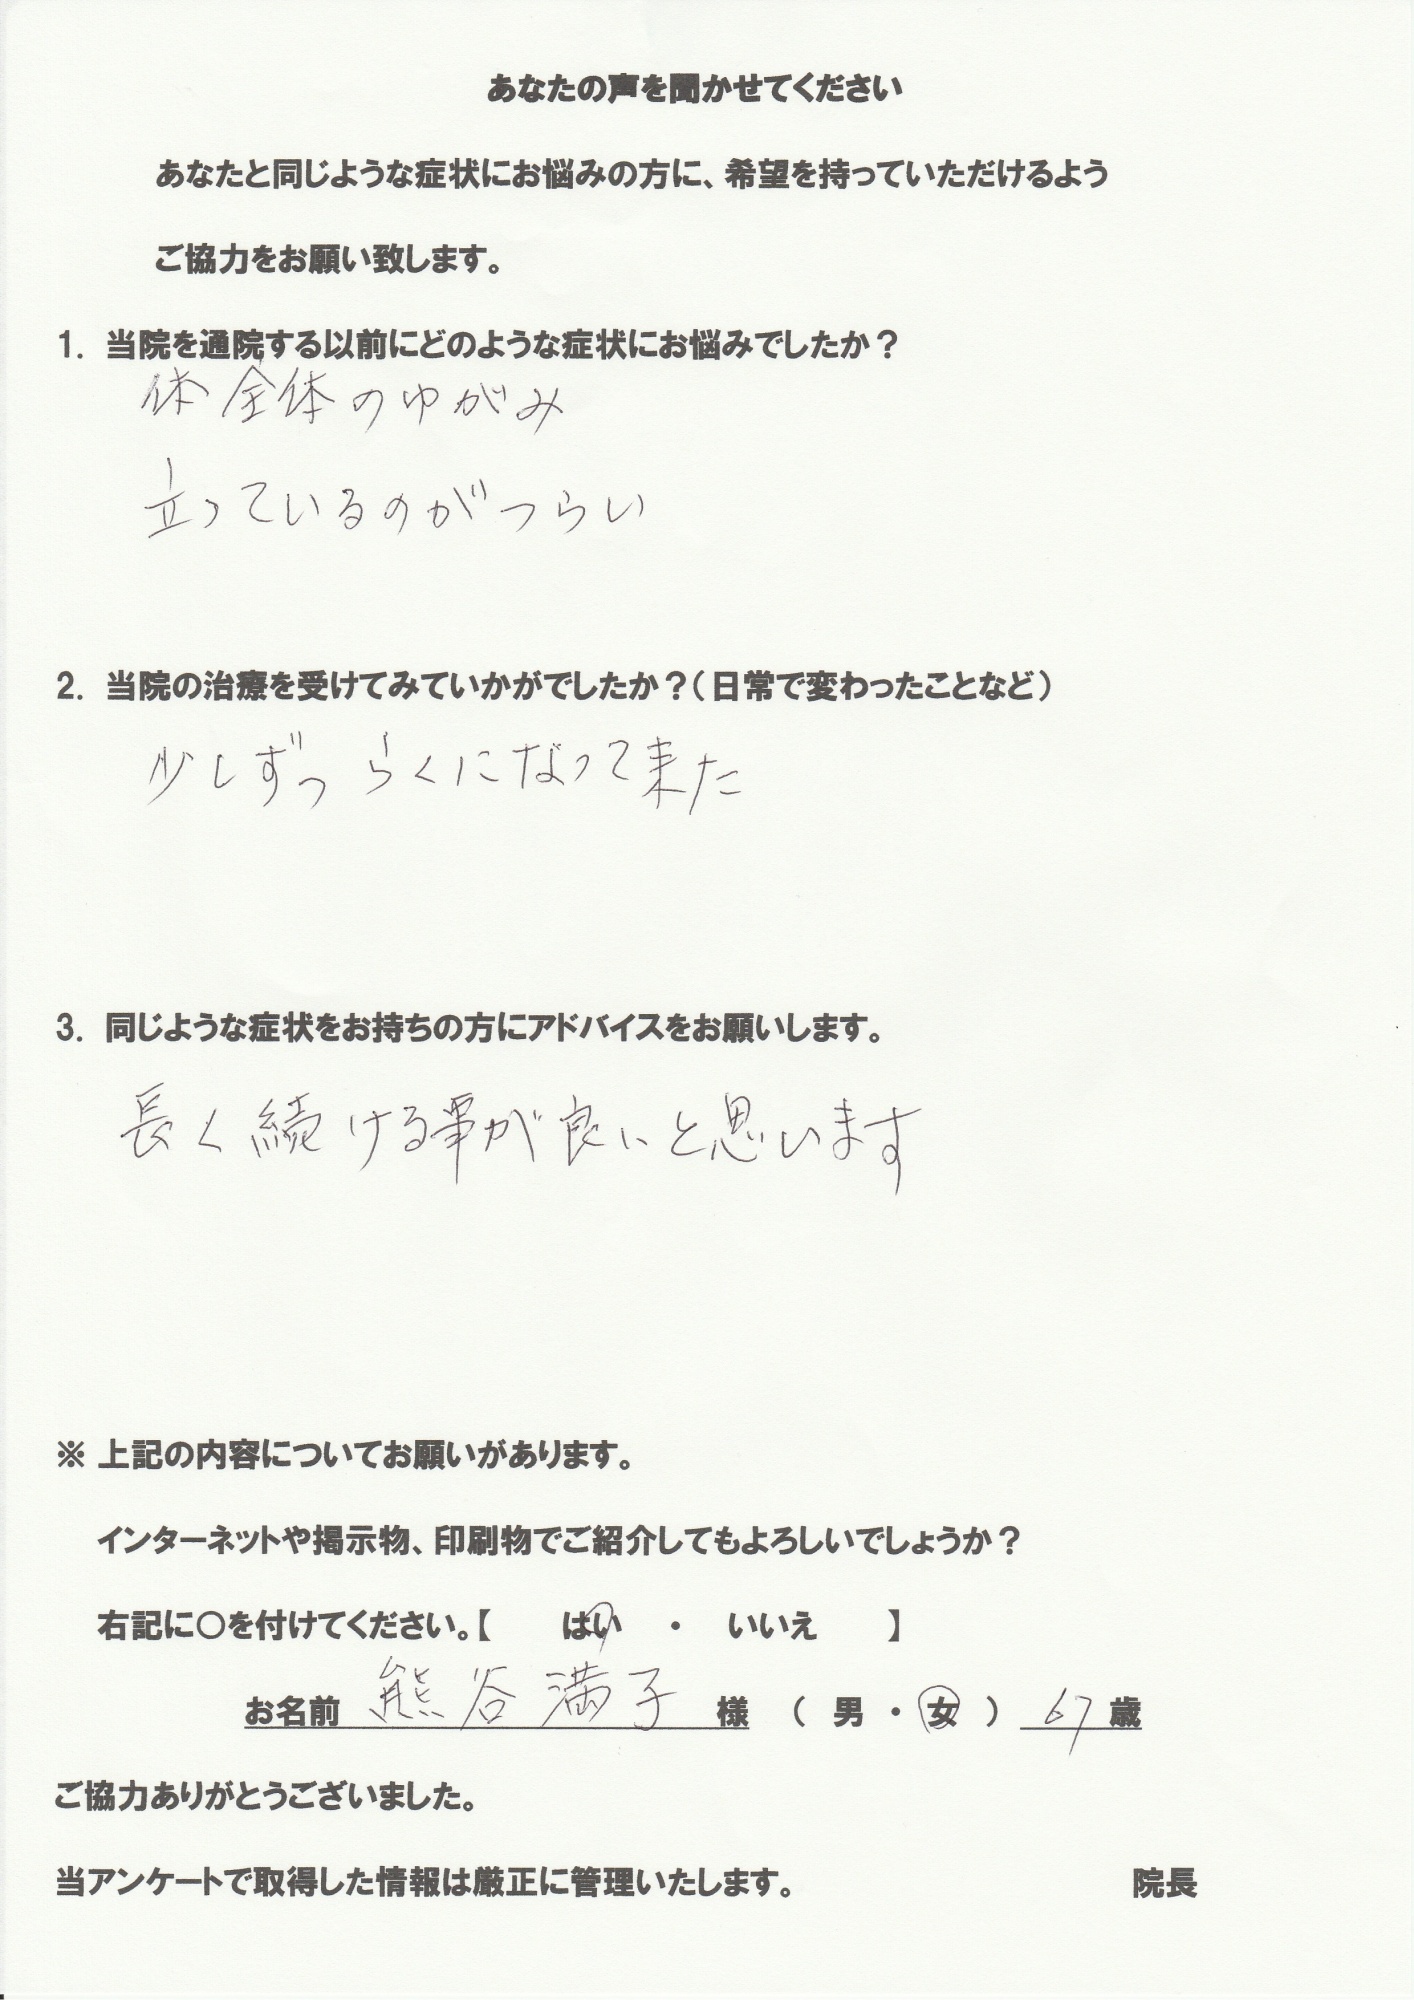 あなたの声を聞かせてください
あなたと同じような症状にお悩みの方に、希望を持っていただけるよう
ご協力をお願い致します。
1. 当院を通院する以前にどのような症状にお悩みでしたか？
体全体のゆがみ
立っているのがつらい
2. 当院の治療を受けてみていかがでしたか？（日常で変わったことなど）
少しずつ らくになって来た
3. 同じような症状をお持ちの方にアドバイスをお願いします。
長く続ける事が良いと思います
※ 上記の内容についてお願いがあります。
インターネットや掲示物、印刷物でご紹介してもよろしいでしょうか？
右記に○を付けてください。【 はい ・ いいえ 】
お名前 熊谷満子 様 （ 男 ・ 女 ） 67 歳
ご協力ありがとうございました。
当アンケートで取得した情報は厳正に管理いたします。 院長